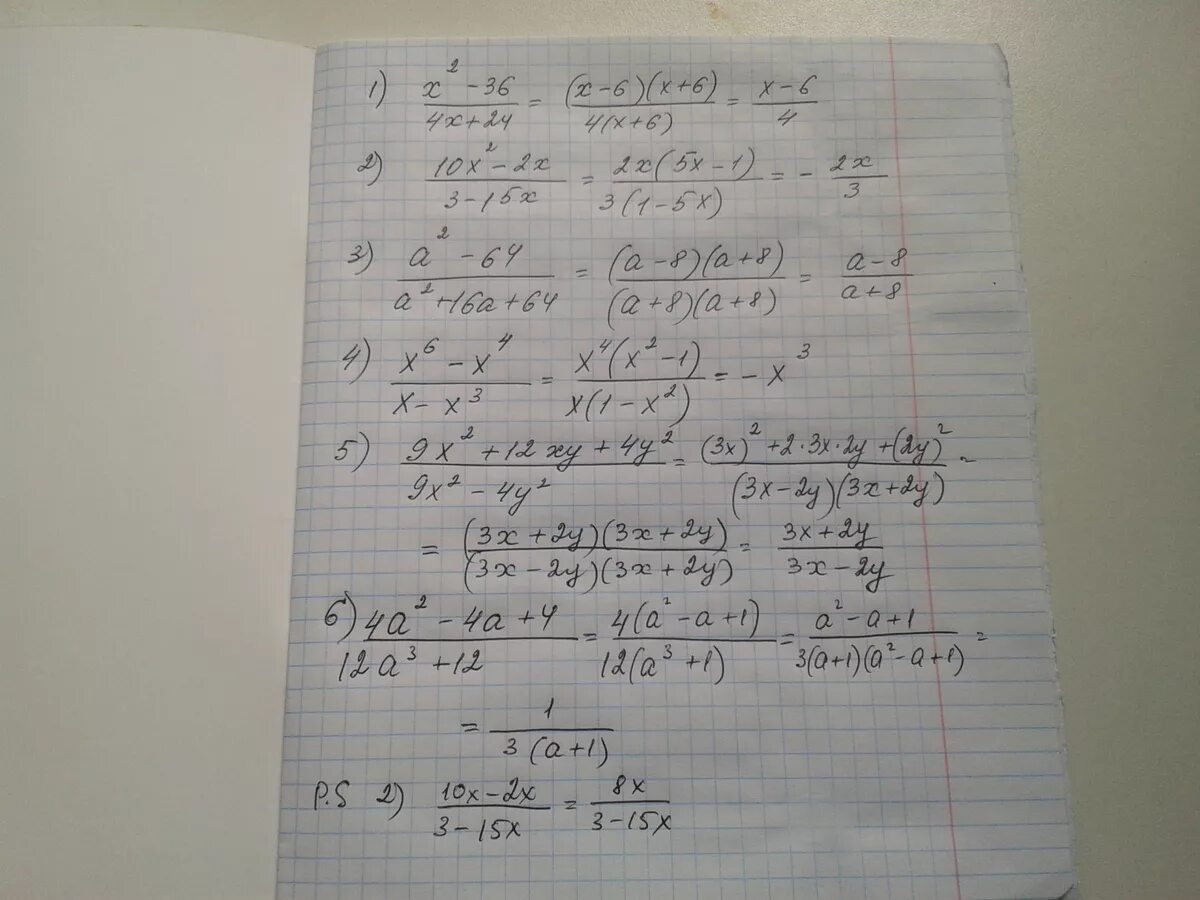 1) (x² - 36)/(4x+24) = ((x-6)(x+6))/(4(x+6)) = (x-6)/4
2) (10x² - 2x)/(3-15x) = (2x(5x-1))/(3(1-5x)) = - 2x/3
3) (a² - 64)/(a²+16a+64) = ((a-8)(a+8))/((a+8)(a+8)) = (a-8)/(a+8)
4) (x⁶ - x⁴)/(x - x³) = (x⁴(x²-1))/(x(1-x²)) = - x³
5) (9x² + 12xy + 4y²)/(9x² - 4y²) = ((3x)² + 2·3x·2y + (2y)²)/((3x-2y)(3x+2y)) =
= ((3x+2y)(3x+2y))/((3x-2y)(3x+2y)) = (3x+2y)/(3x-2y)
6) (4a² - 4a + 4)/(12a³ + 12) = (4(a² - a + 1))/(12(a³ + 1)) = (a² - a + 1)/(3(a+1)(a² - a + 1)) =
= 1/(3(a+1))
P.S 2) (10x - 2x)/(3-15x) = 8x/(3-15x)